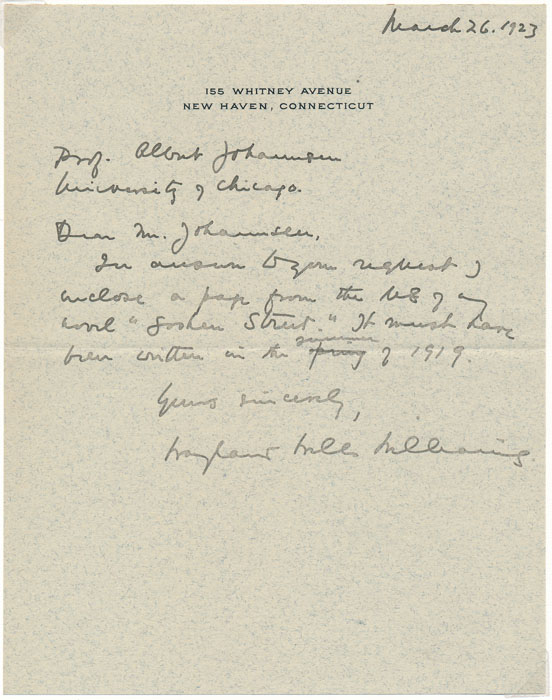 March 26. 1923
155 WHITNEY AVENUE
NEW HAVEN, CONNECTICUT
Prof. Albert Johannsen
University of Chicago.
Dear Mr. Johannsen,
In answer to your request I
enclose a page from the MS of my
novel "Goshen Street." It must have
been written in the spring summer of 1919.
Yours sincerely,
Wayland Wells Williams.